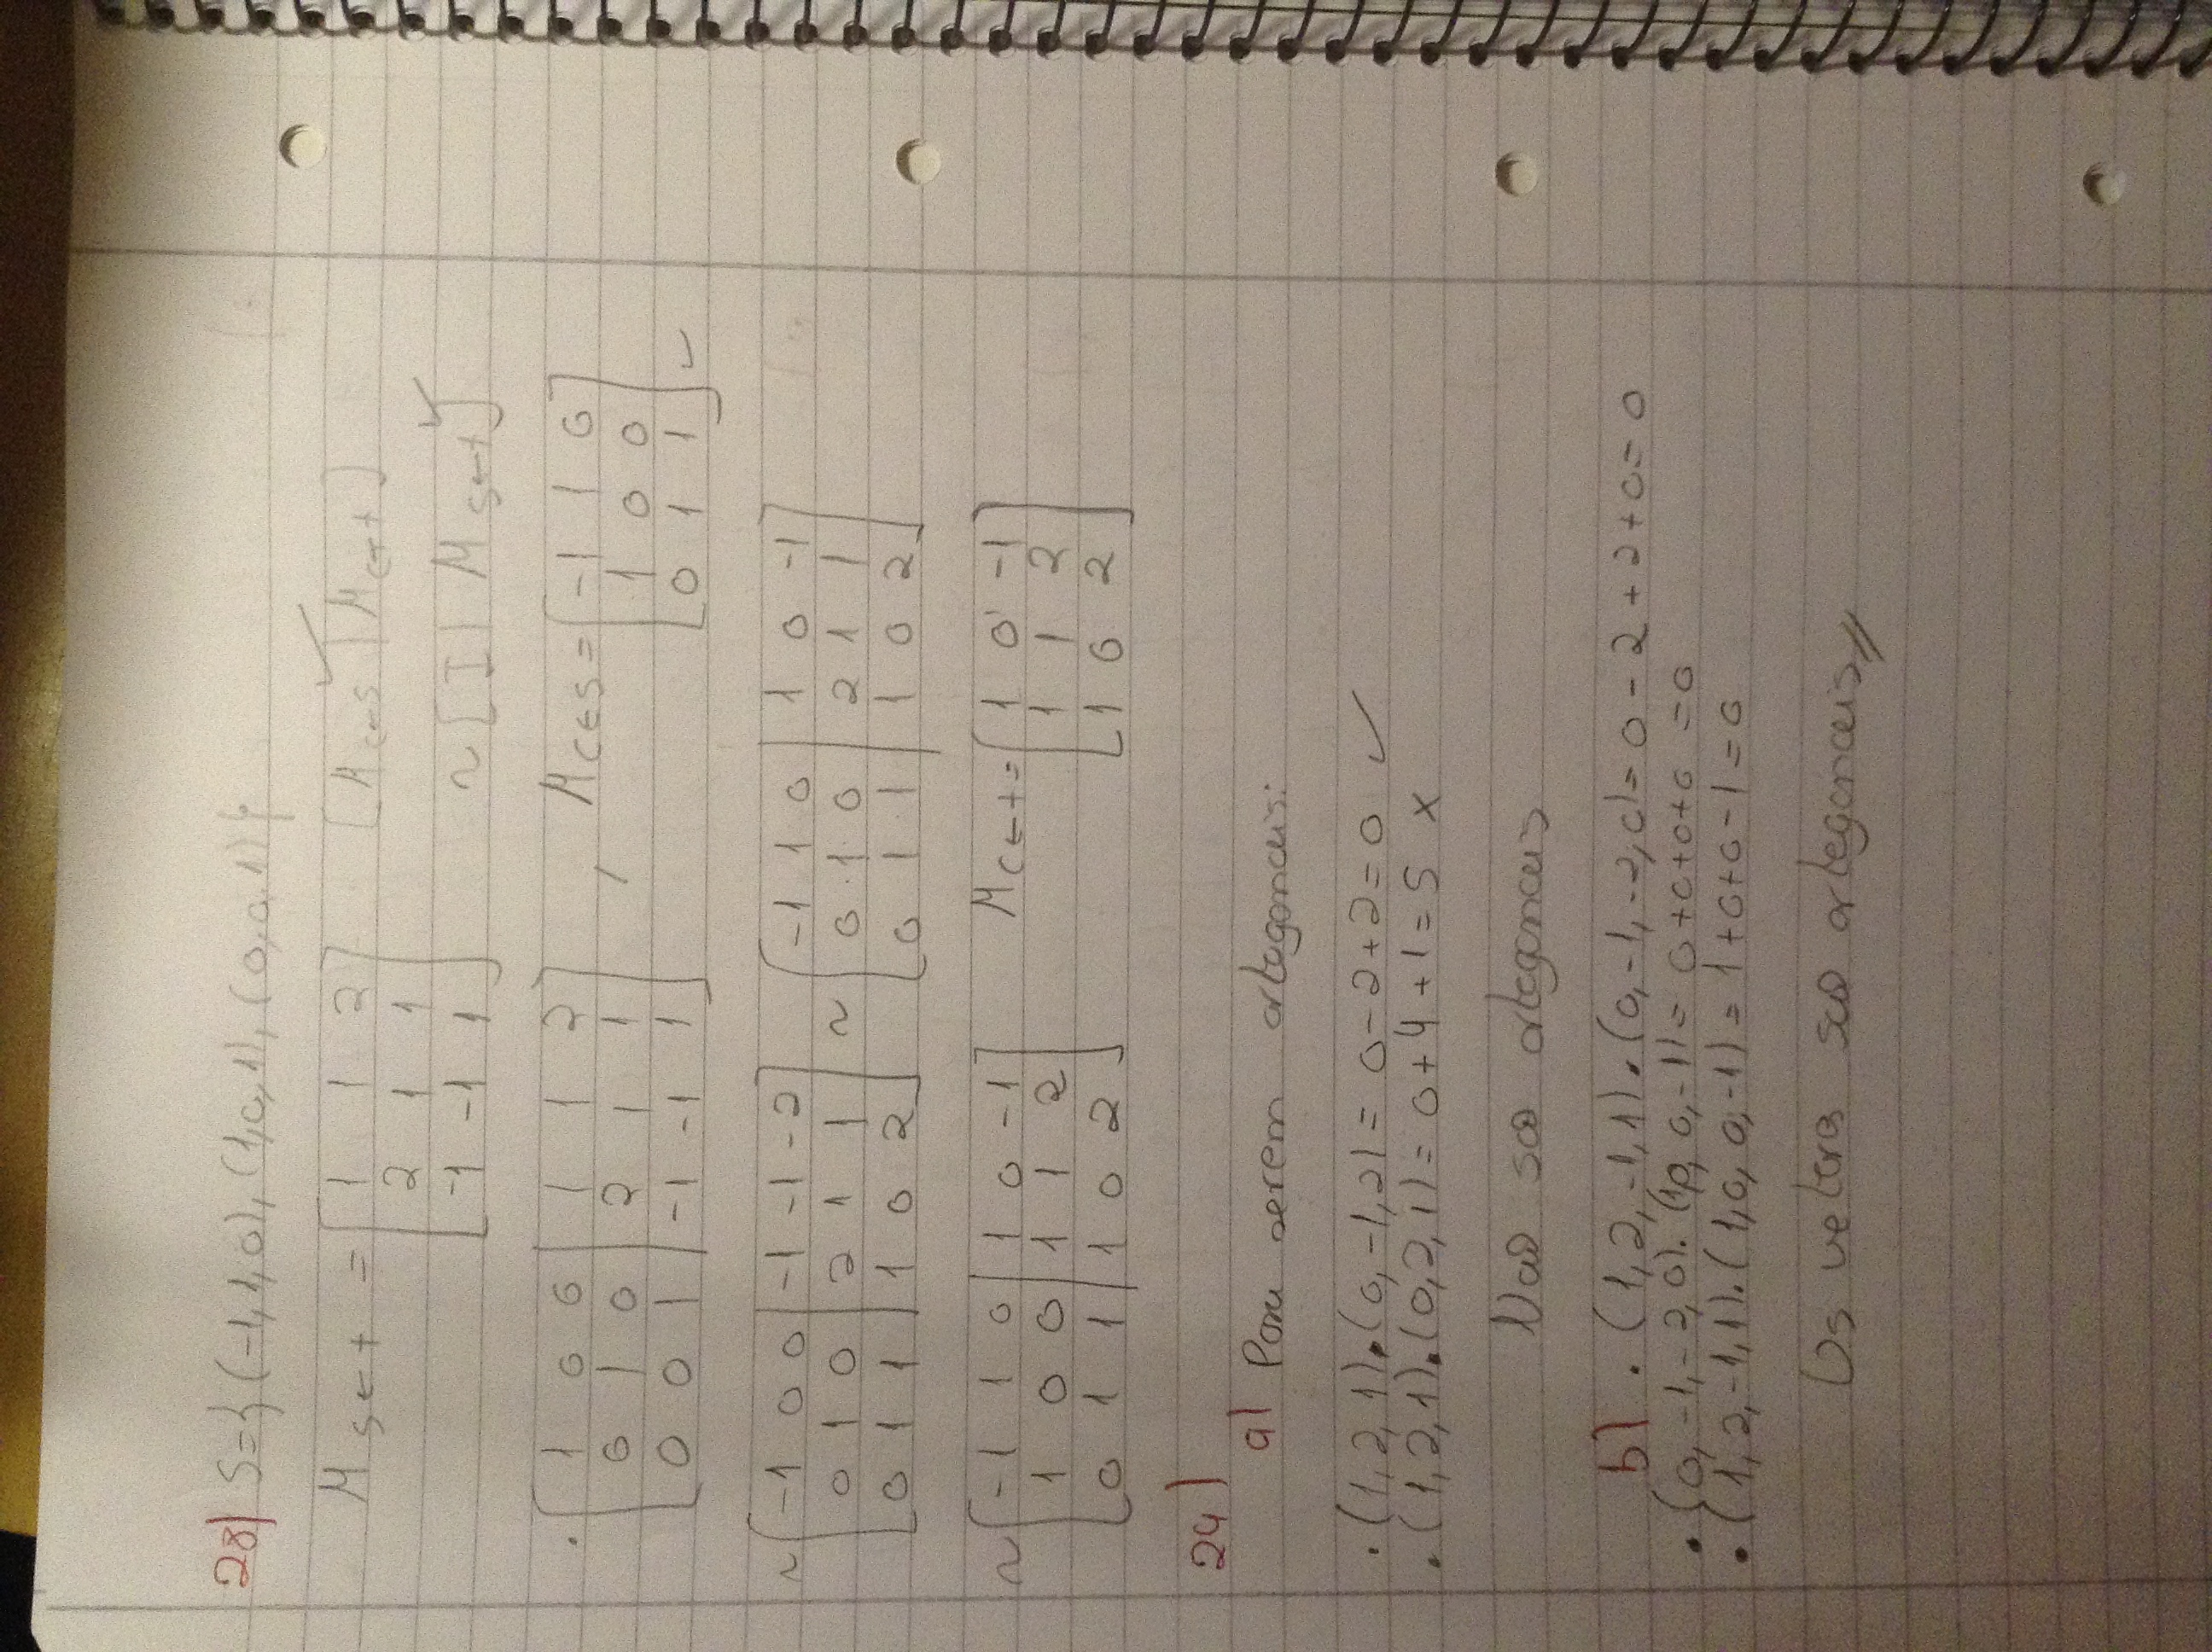 28) S={(-1,1,0),(1,0,1),(0,0,1)}
M S←t = [1 1 2 [M C←S | M C←t]
2 1 1
-1 -1 1] ~ [I | M S←t]
. [1 0 0 | 1 1 2 , M C←S = [-1 1 0
0 1 0 | 2 1 1 1 0 0
0 0 1 | -1 -1 1] 0 1 1] ✓
~ [-1 0 0 | -1 -1 -2 ~ [-1 1 0 | 1 0 -1
0 1 0 | 2 1 1 0 1 0 | 2 1 1
0 1 1 | 1 0 2] 0 1 1 | 1 0 2]
~ [-1 1 0 | 1 0 -1 M C←t = [1 0 -1
1 0 0 | 1 1 2 1 1 2
0 1 1 | 1 0 2] 1 0 2]
24)
a) Para serem ortogonais:
. (1,2,1).(0,-1,2) = 0-2+2=0 ✓
. (1,2,1).(0,2,1) = 0+4+1=5 x
Nao sao ortogonais
b) . (1,2,-1,1).(0,-1,-2,0)= 0-2+2+0=0
. (0,-1,-2,0).(1,0,0,-1)= 0+0+0+0 =0
. (1,2,-1,1).(1,0,0,-1)= 1+0+0-1=0
Os vetores sao ortogonais //